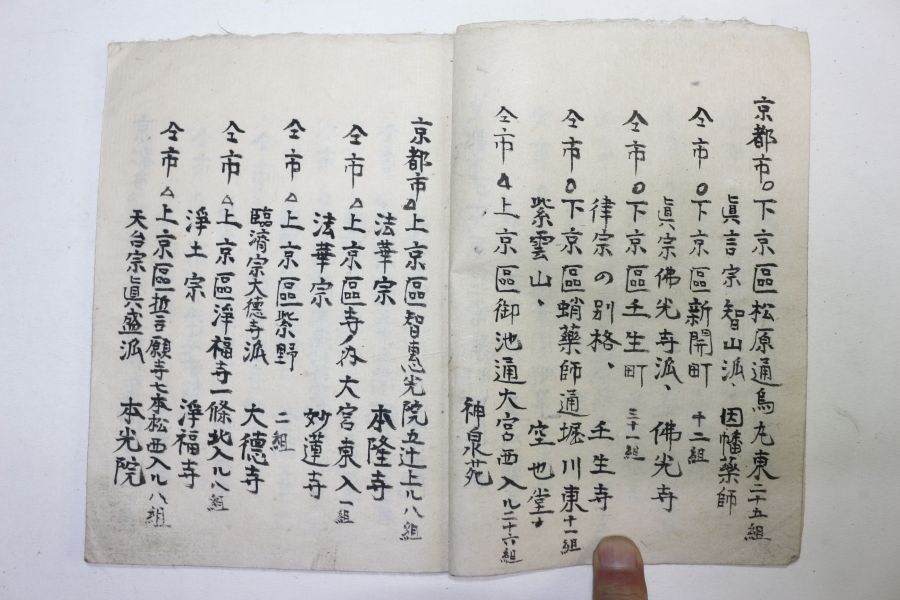 京都市○下京區松原通烏丸東二十五組
眞言宗智山派、因幡藥師
仝市○下京區新開町十二組
眞宗佛光寺派、佛光寺
仝市○下京區壬生町三十一組
律宗の別格、壬生寺
仝市○下京區蛸藥師通堀川東十一組
紫雲山、空也堂、
仝市△上京區御池通大宮西入ル二十六組
神泉苑
京都市△上京區智惠光院五辻上ル八組
法華宗 本隆寺
仝市△上京區寺ノ内大宮東入一組
法華宗 妙蓮寺
仝市△上京區紫野 二組
臨濟宗大德寺派 大德寺
仝市△上京區淨福寺一條北入ル八組
淨土宗 淨福寺
仝市△上京區誓願寺七本松西入ル八組
天台宗眞盛派 本光院